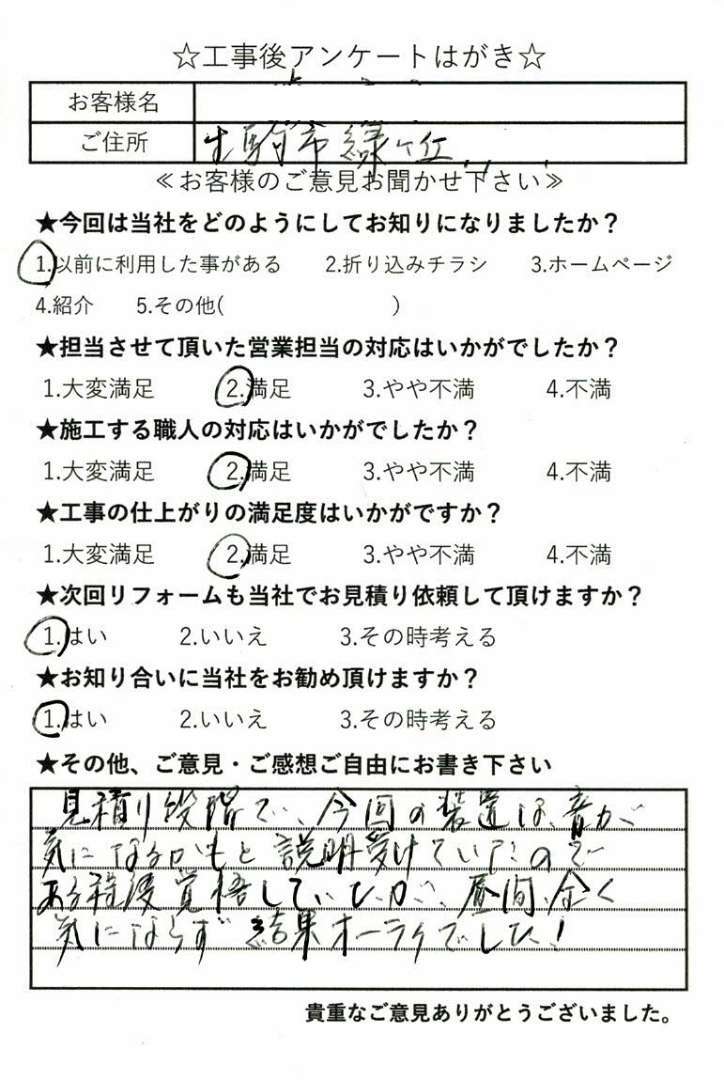 ☆工事後アンケートはがき☆
お客様名
ご住所 生駒市緑ヶ丘
≪お客様のご意見お聞かせ下さい≫
★今回は当社をどのようにしてお知りになりましたか？
1.以前に利用した事がある 2.折り込みチラシ 3.ホームページ
4.紹介 5.その他( )
★担当させて頂いた営業担当の対応はいかがでしたか？
1.大変満足 2.満足 3.やや不満 4.不満
★施工する職人の対応はいかがでしたか？
1.大変満足 2.満足 3.やや不満 4.不満
★工事の仕上がりの満足度はいかがですか？
1.大変満足 2.満足 3.やや不満 4.不満
★次回リフォームも当社でお見積り依頼して頂けますか？
1.はい 2.いいえ 3.その時考える
★お知り合いに当社をお勧め頂けますか？
1.はい 2.いいえ 3.その時考える
★その他、ご意見・ご感想ご自由にお書き下さい
見積り段階で、今回の装置は、音が
気になるかもと説明受けていたので
ある程度覚悟していたが、昼間、全く
気にならず結果オーライでした！
貴重なご意見ありがとうございました。